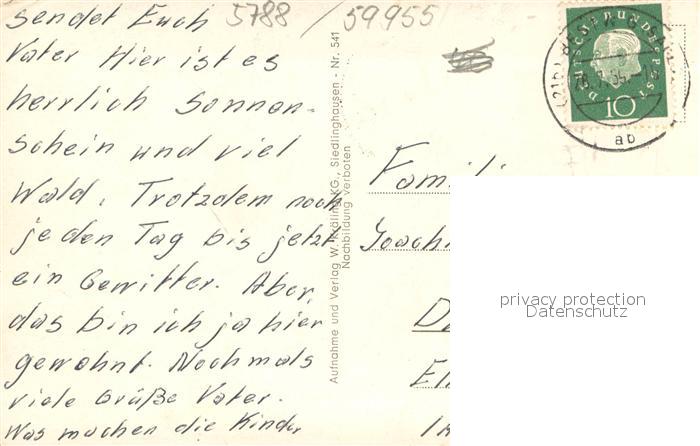 sendet Euch
Vater Hier ist es
herrlich Sonnen-
schein und viel
Wald. Trotzdem noch
jeden Tag bis jetzt
ein Gewitter. Aber,
das bin ich ja hier
gewohnt. Nochmals
viele Grüße Vater.
Was machen die Kinder
5788 / 59955
Aufnahme und Verlag W. Kölling KG., Siedlinghausen - Nr. 541
Nachbildung verboten
DEUTSCHE BUNDESPOST
10
(21b)
ab
Famili
Joach
privacy protection
Datenschutz